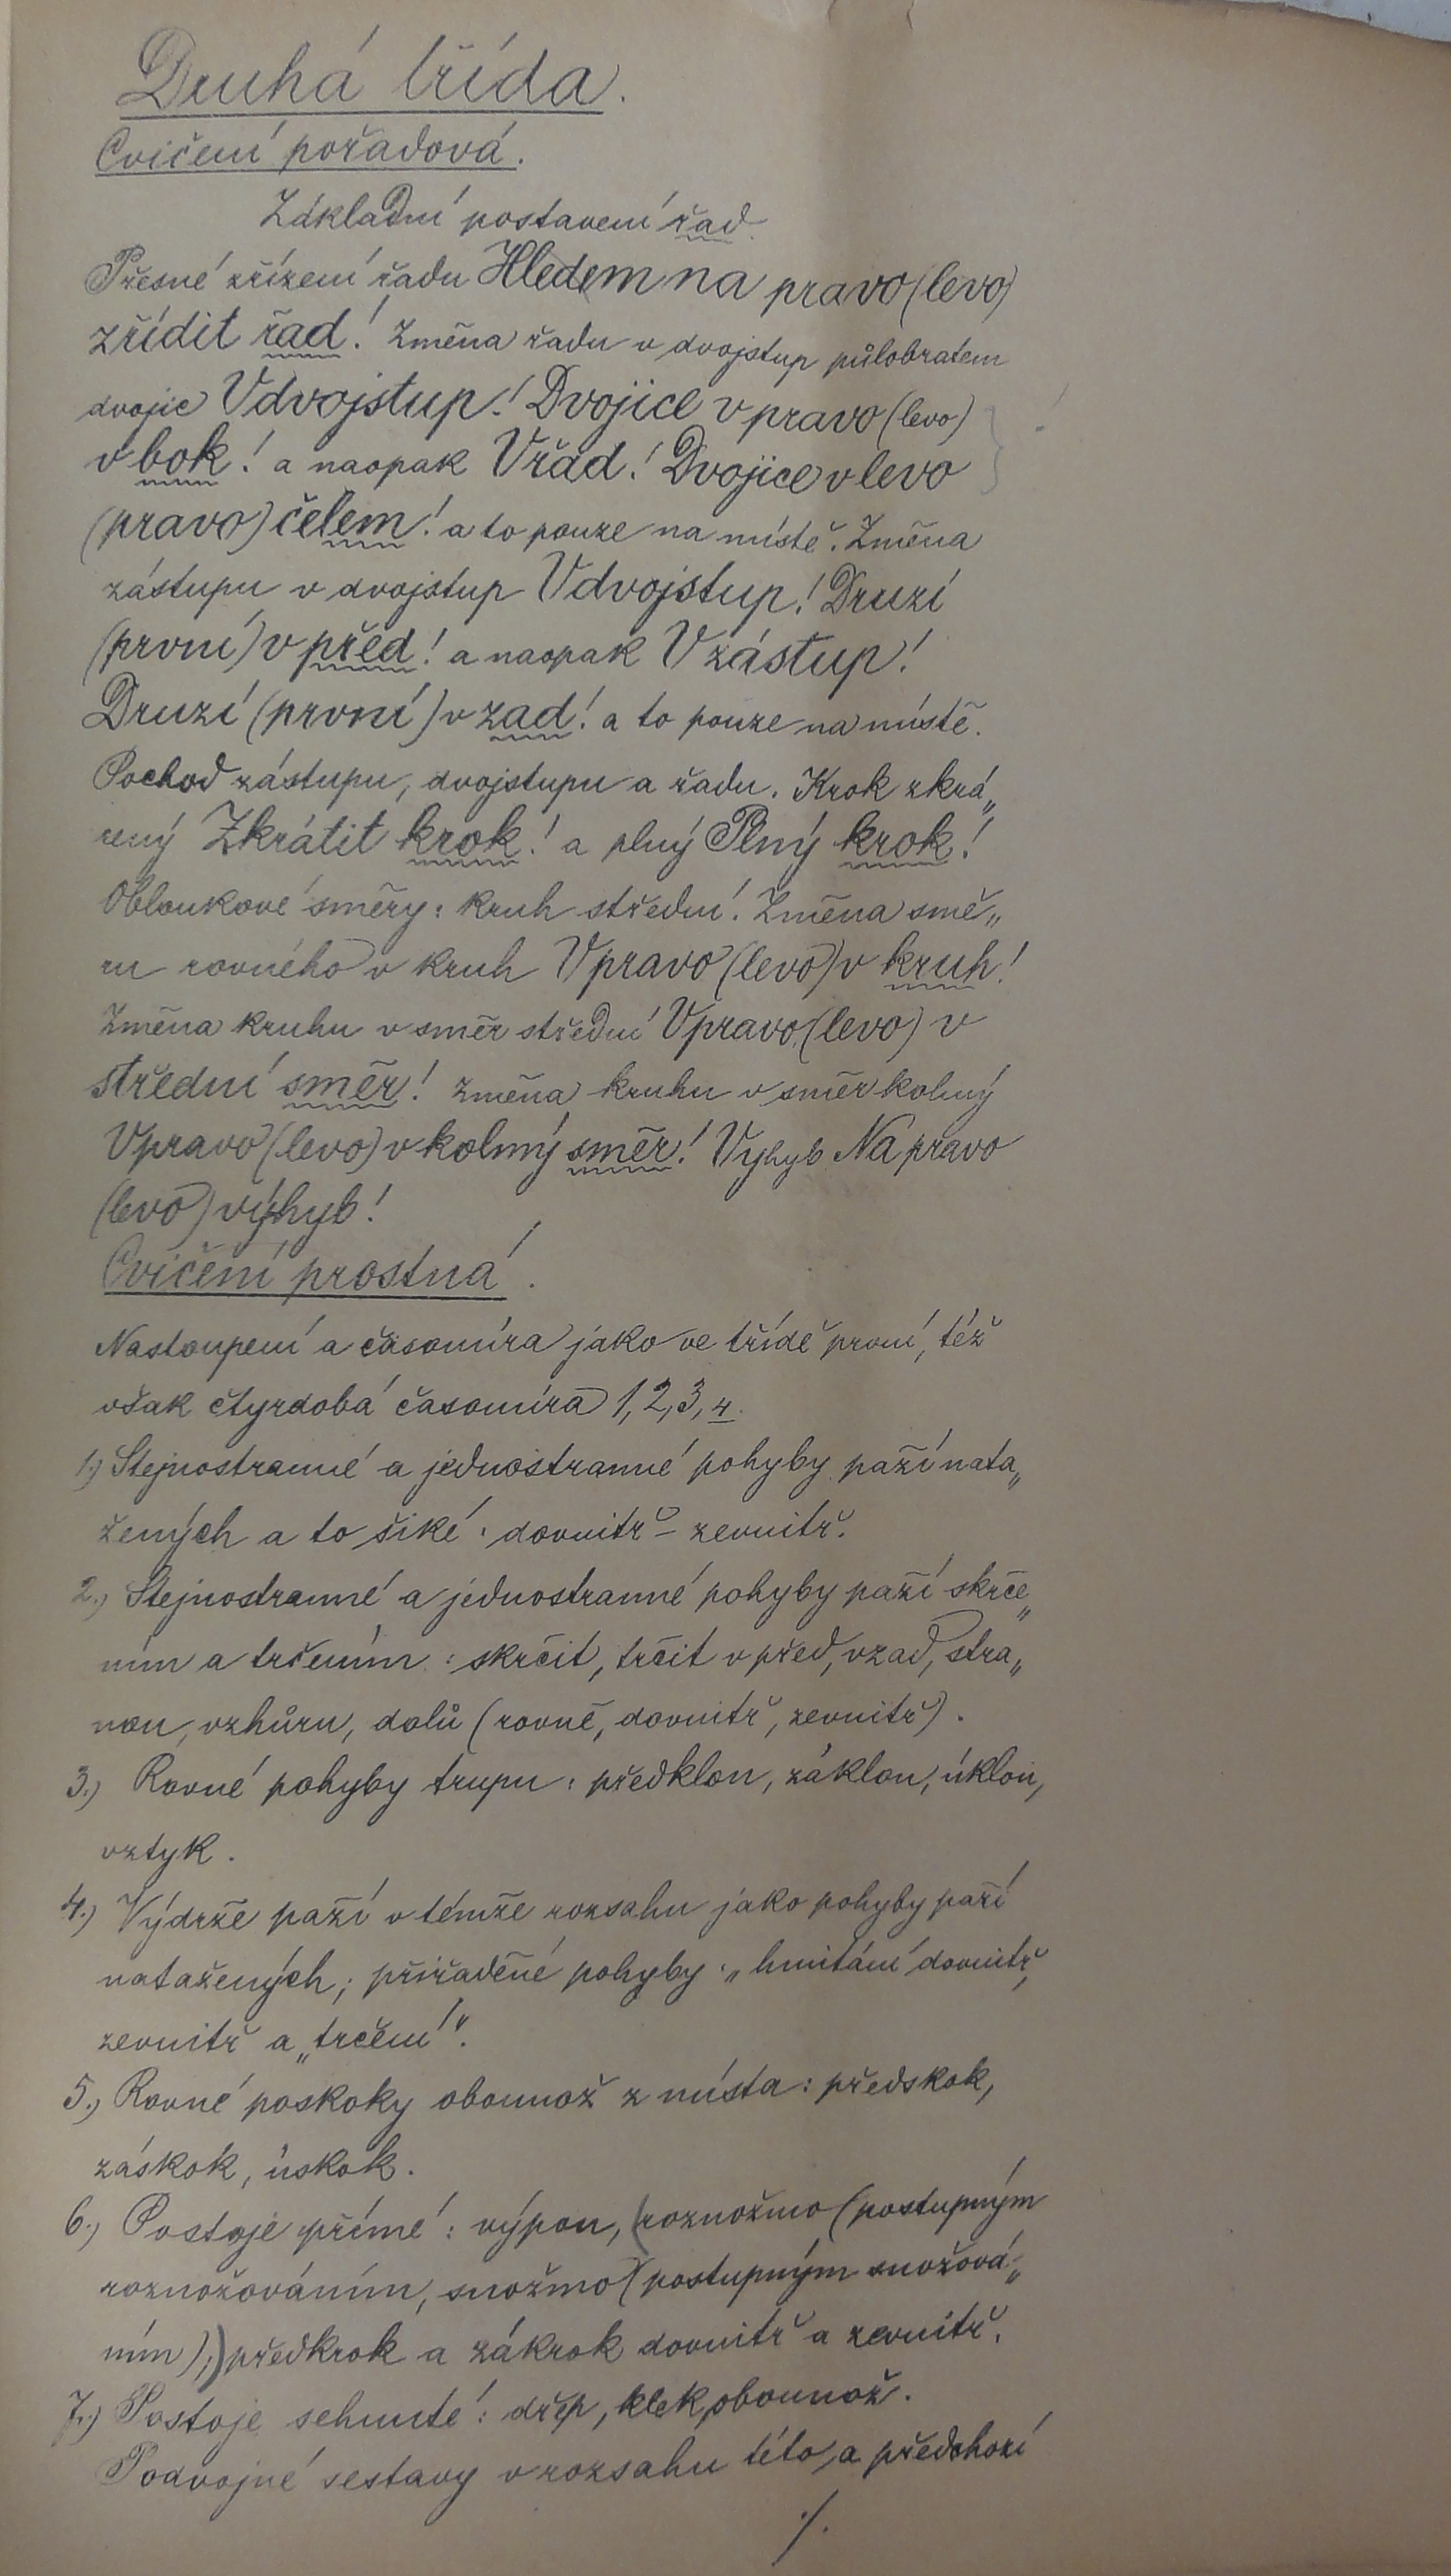 Druhá třída.
Cvičení pořadová.
Základní postavení řad.
Přesné zřízení řadu Hledem na pravo (levo)
zřídit řad! Změna řadu v dvojstup půlobratem
dvojic Vdvojstup! Dvojice v pravo (levo)
v bok! a naopak Vřad! Dvojice v levo
(pravo) čelem! a to pouze na místě. Změna
zástupu v dvojstup Vdvojstup! Druzí
(první) v před! a naopak V zástup!
Druzí (první) v zad! a to pouze na místě.
Pochod zástupu, dvojstupu a řadu. Krok zkrá„
cený Zkrátit krok! a plný Plný krok!
Obloukové směry: kruh střední. Změna smě„
ru rovného v kruh Vpravo (levo) v kruh!
Změna kruhu v směr střední Vpravo (levo) v
střední směr! Změna kruhu v směr kolmý
Vpravo (levo) v kolmý směr! Vyhyb Na pravo
(levo) výhyb!
Cvičení prostná.
Nastoupení a časomíra jako ve třídě první, též
však čtyrdobá časomíra 1, 2, 3, 4.
1.) Stejnostranné a jednostranné pohyby paží nata„
žených a to šiké: dovnitř – zevnitř.
2.) Stejnostranné a jednostranné pohyby paží skrče„
ním a trčením: skrčit, trčit v před, vzad, stra„
nou, vzhůru, dolů (rovně, dovnitř, zevnitř).
3.) Rovné pohyby trupu: předklon, záklon, úklon,
vztyk.
4.) Výdrže paží v témže rozsahu jako pohyby paží
natažených; přiřaděné pohyby: „hmitání dovnitř,
zevnitř a „trčení".
5.) Rovné poskoky obounož z místa: předskok,
záskok, úskok.
6.) Postoje přímé: výpon, (roznožmo (postupným
roznožováním, snožmo (postupným snožová„
ním),) předkrok a zákrok dovnitř a zevnitř.
7.) Postoje sehnuté: dřep, klek obounož.
Podvojné sestavy v rozsahu této a předchozí
./.